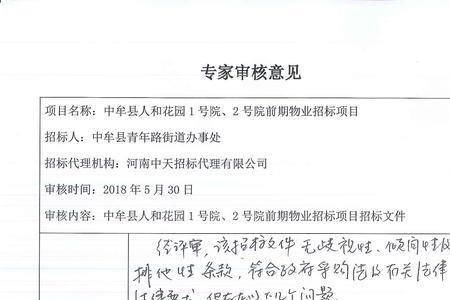 专家审核意见
项目名称：中牟县人和花园1号院、2号院前期物业招标项目
招标人：中牟县青年路街道办事处
招标代理机构：河南中天招标代理有限公司
审核时间：2018年5月30日
审核内容：中牟县人和花园1号院、2号院前期物业招标项目招标文件
经评审，该招标文件无歧视性、倾向性及
排他性条款，符合政府采购法及有关法律
法律要求，但存在以下几个问题